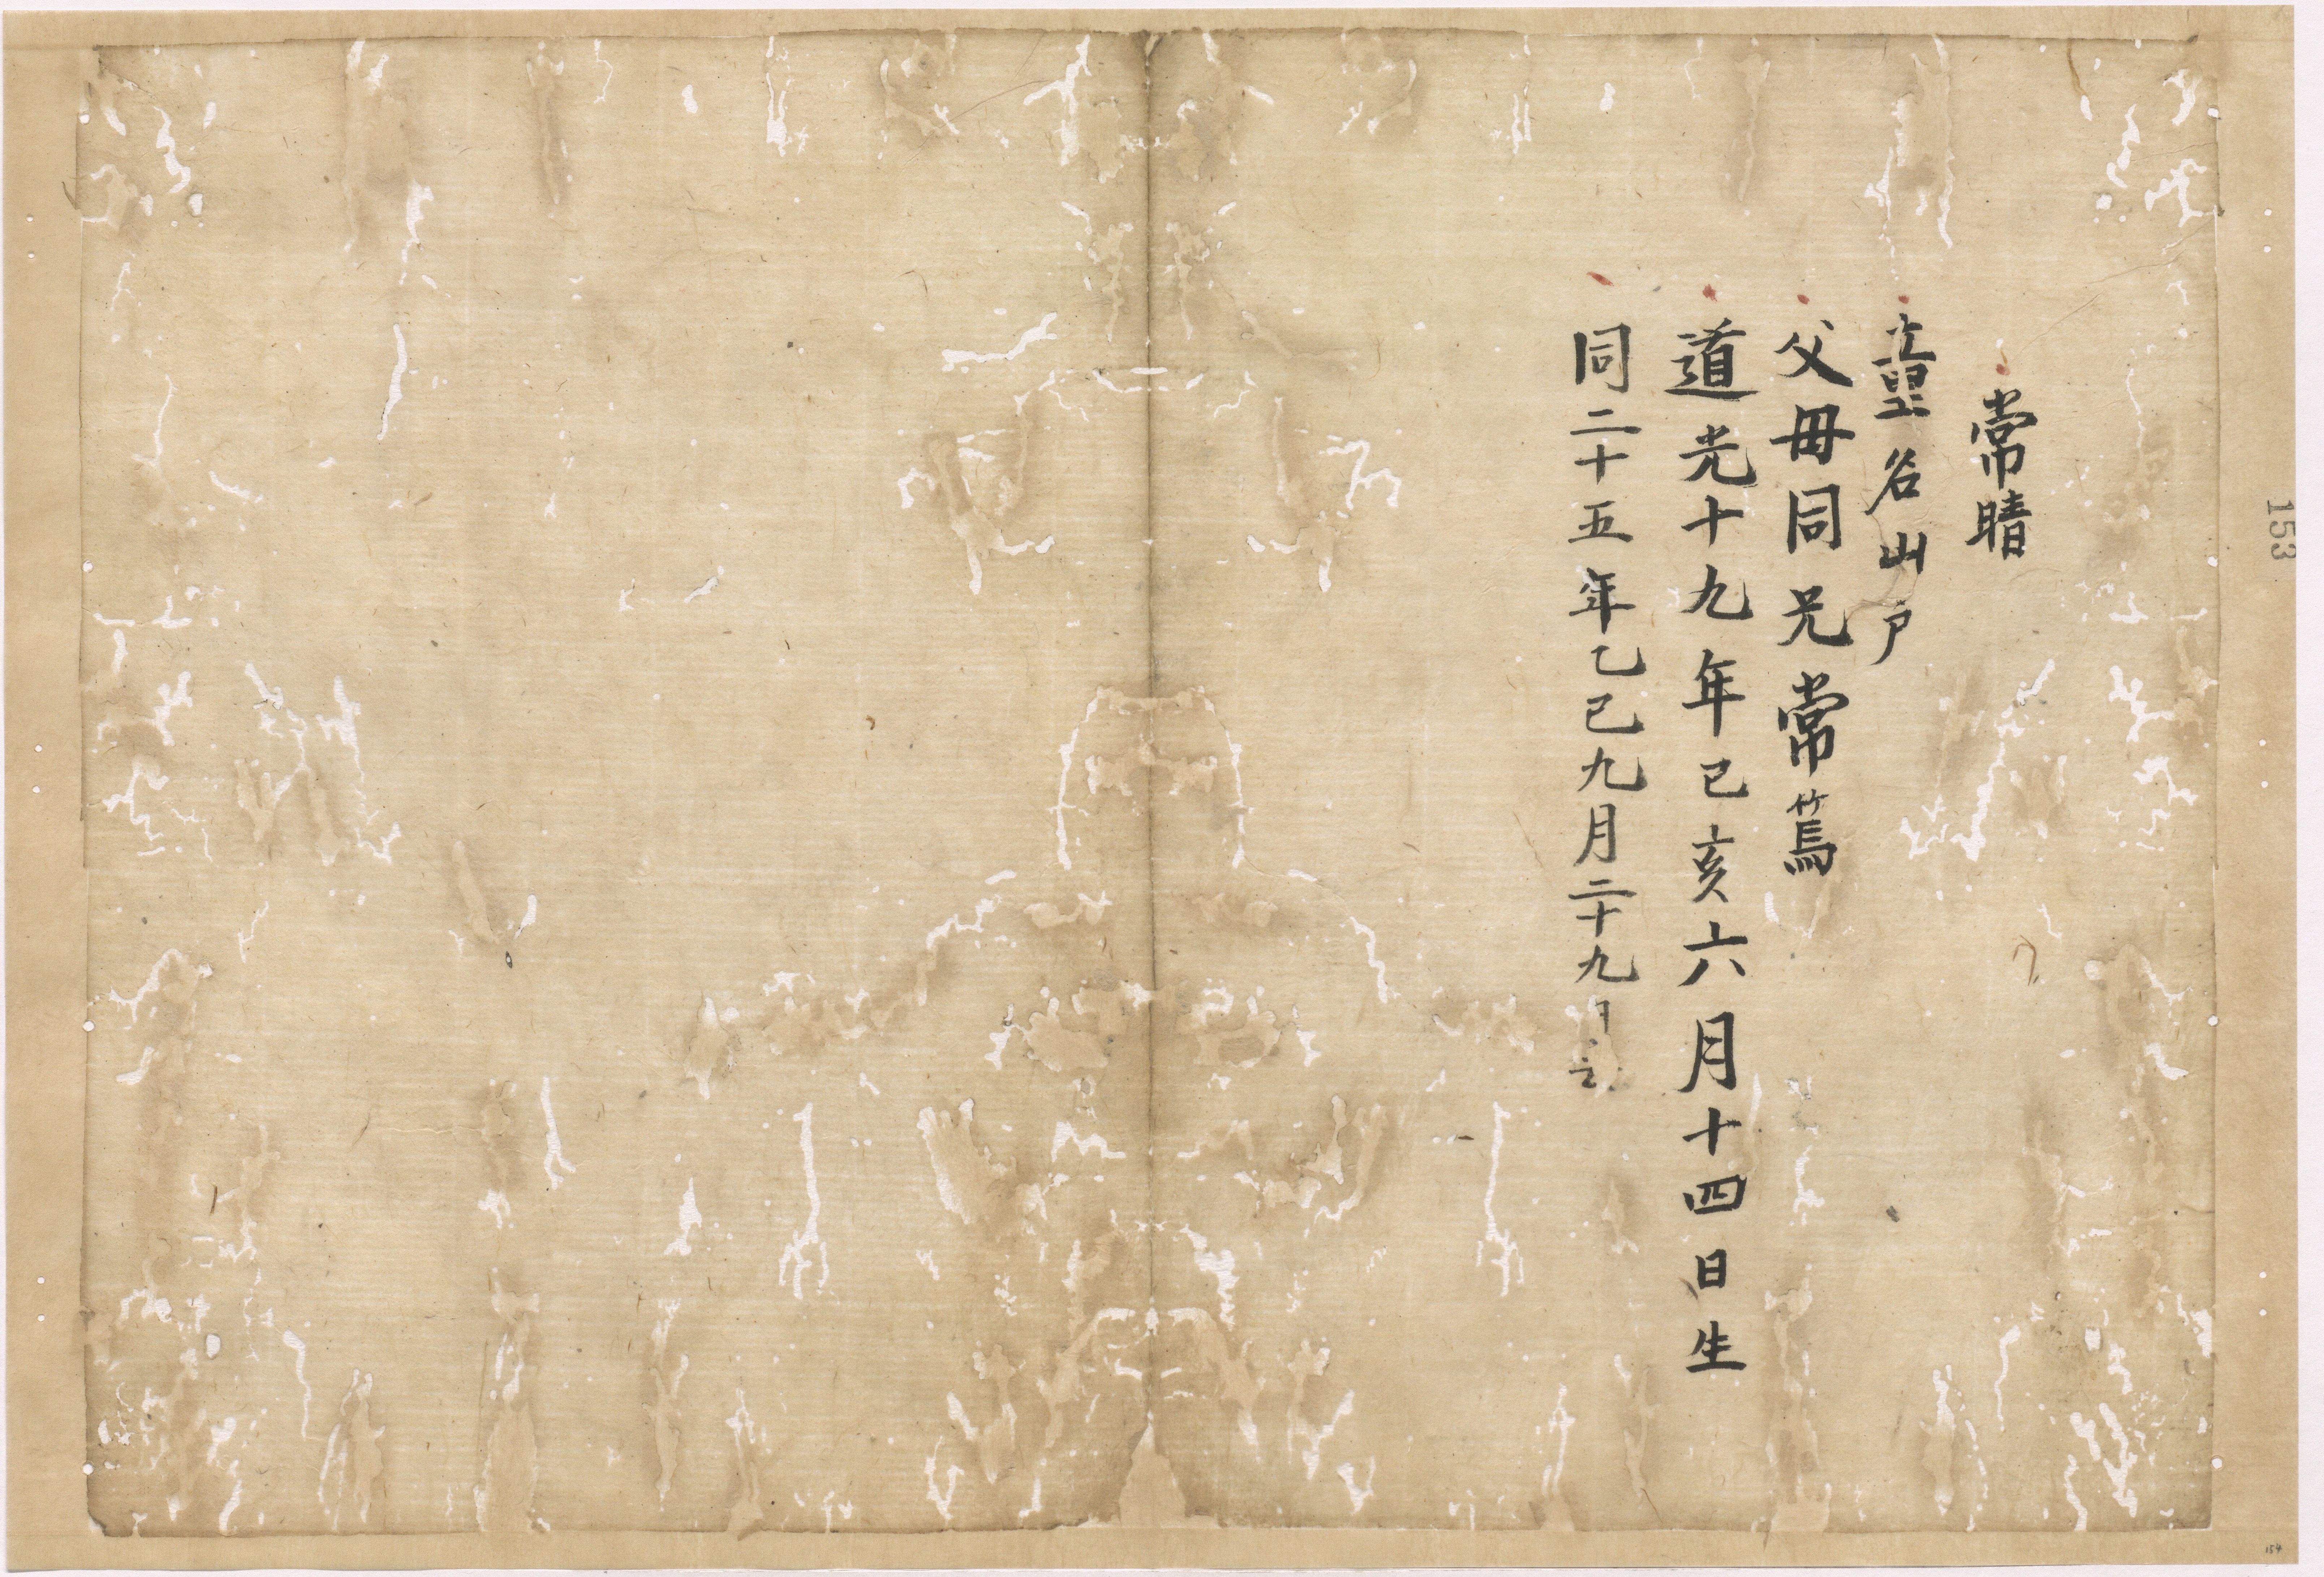 常晴
童名山戸
父母同兄常篤
道光十九年己亥六月十四日生
同二十五年乙巳九月二十九日
153
154